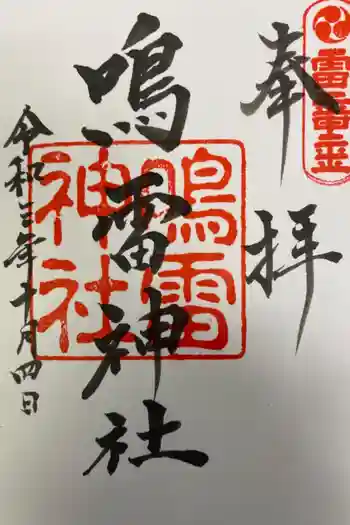 奉拝
鳴雷神社
令和三年十月四日
鳴雷
神社